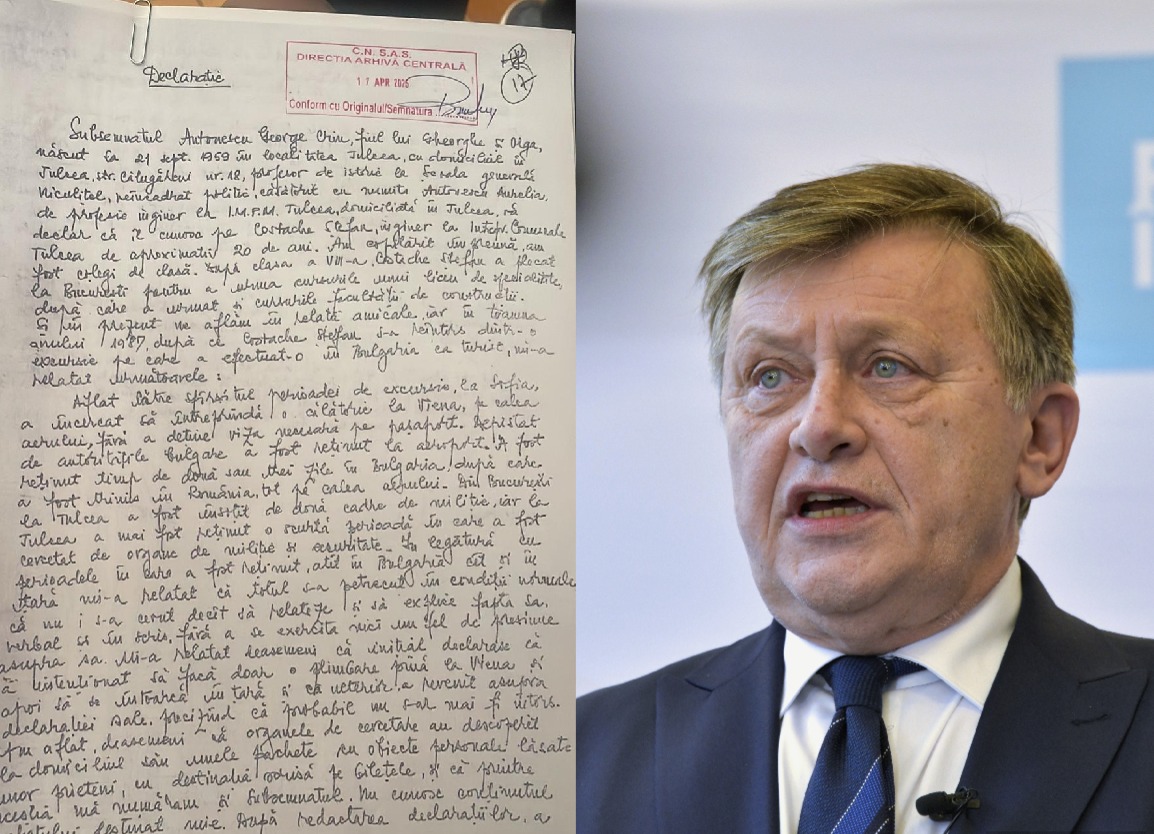 Declarație
C.N. S.A.S.
DIRECTIA ARHIVĂ CENTRALĂ
17 APR 2025
Conform cu Originalul/Semnatura
17
Subsemnatul Antonescu George Crin, fiul lui Gheorghe și Olga,
născut la 21 sept. 1959 în localitatea Tulcea, cu domiciliul în
Tulcea, str. Călugăreni nr. 18, profesor de istorie la Școala generală
Niculițel, neîncadrat politic, căsătorit cu numita Antonescu Aurelia,
de profesie inginer la I.M.P.M. Tulcea, domiciliată în Tulcea, vă
declar că îl cunosc pe Costache Ștefan, inginer la Întrepr. Comunale
Tulcea de aproximativ 20 de ani. Am copilărit împreună, am
fost colegi de clasă. După clasa a VIII-a, Costache Ștefan a plecat
la București pentru a urma cursurile unui liceu de specialitate,
după care a urmat și cursurile facultății de construcții.
Și în prezent ne aflăm în relații amicale, iar în toamna
anului 1987, după ce Costache Ștefan s-a reîntors dintr-o
excursie pe care a efectuat-o în Bulgaria ca turist, mi-a
relatat următoarele :
Aflat către sfîrșitul perioadei de excursie, la Sofia,
a încercat să întreprindă o călătorie la Viena, pe calea
aerului, fără a deține viza necesară pe pașaport. Depistat
de autoritățile bulgare a fost reținut la aeroport. A fost
reținut timp de două sau trei zile în Bulgaria, după care
a fost trimis în România, tot pe calea aerului. Din București
la Tulcea a fost însoțit de două cadre de miliție, iar la
Tulcea a mai fost reținut o scurtă perioadă în care a fost
cercetat de organe de miliție și securitate. În legătură cu
perioadele în care a fost reținut, atît în Bulgaria cît și în
țară mi-a relatat că totul s-a petrecut în condiții normale
că nu i s-a cerut decît să relateze și să explice fapta sa,
verbal și în scris, fără a se exercita nici un fel de presiune
asupra sa. Mi-a relatat deasemeni că inițial declarase că
a intenționat să facă doar o plimbare pînă la Viena și
apoi să se întoarcă în țară și că ulterior a revenit asupra
declarației sale, precizînd că probabil nu s-ar mai fi întors.
Am aflat, deasemeni că organele de cercetare au descoperit
la domiciliul său unele pachete cu obiecte personale lăsate
unor prieteni, cu destinația scrisă pe biletele, și că printre
aceștia mă număram și subsemnatul. Nu cunosc conținutul
destinat mie. După redactarea declarațiilor, a